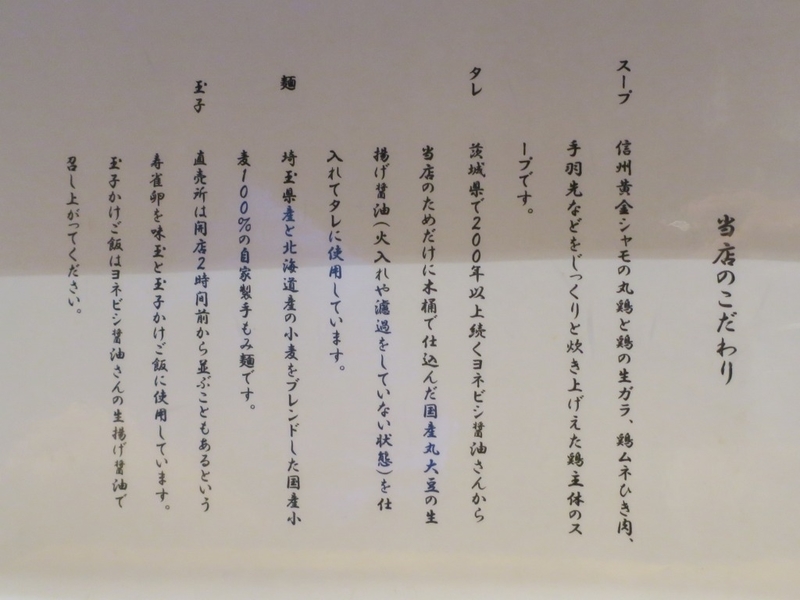 当店のこだわり
スープ 信州黄金シャモの丸鶏と鶏の生ガラ、鶏ムネひき肉、
手羽先などをじっくりと炊き上げえた鶏主体のス
ープです。
タレ 茨城県で200年以上続くヨネビシ醤油さんから
当店のためだけに木桶で仕込んだ国産丸大豆の生
揚げ醤油(火入れや濾過をしていない状態)を仕
入れてタレに使用しています。
麺 埼玉県産と北海道産の小麦をブレンドした国産小
麦100%の自家製手もみ麺です。
玉子 直売所は開店2時間前から並ぶこともあるという
寿雀卵を味玉と玉子かけご飯に使用しています。
玉子かけご飯はヨネビシ醤油さんの生揚げ醤油で
召し上がってください。